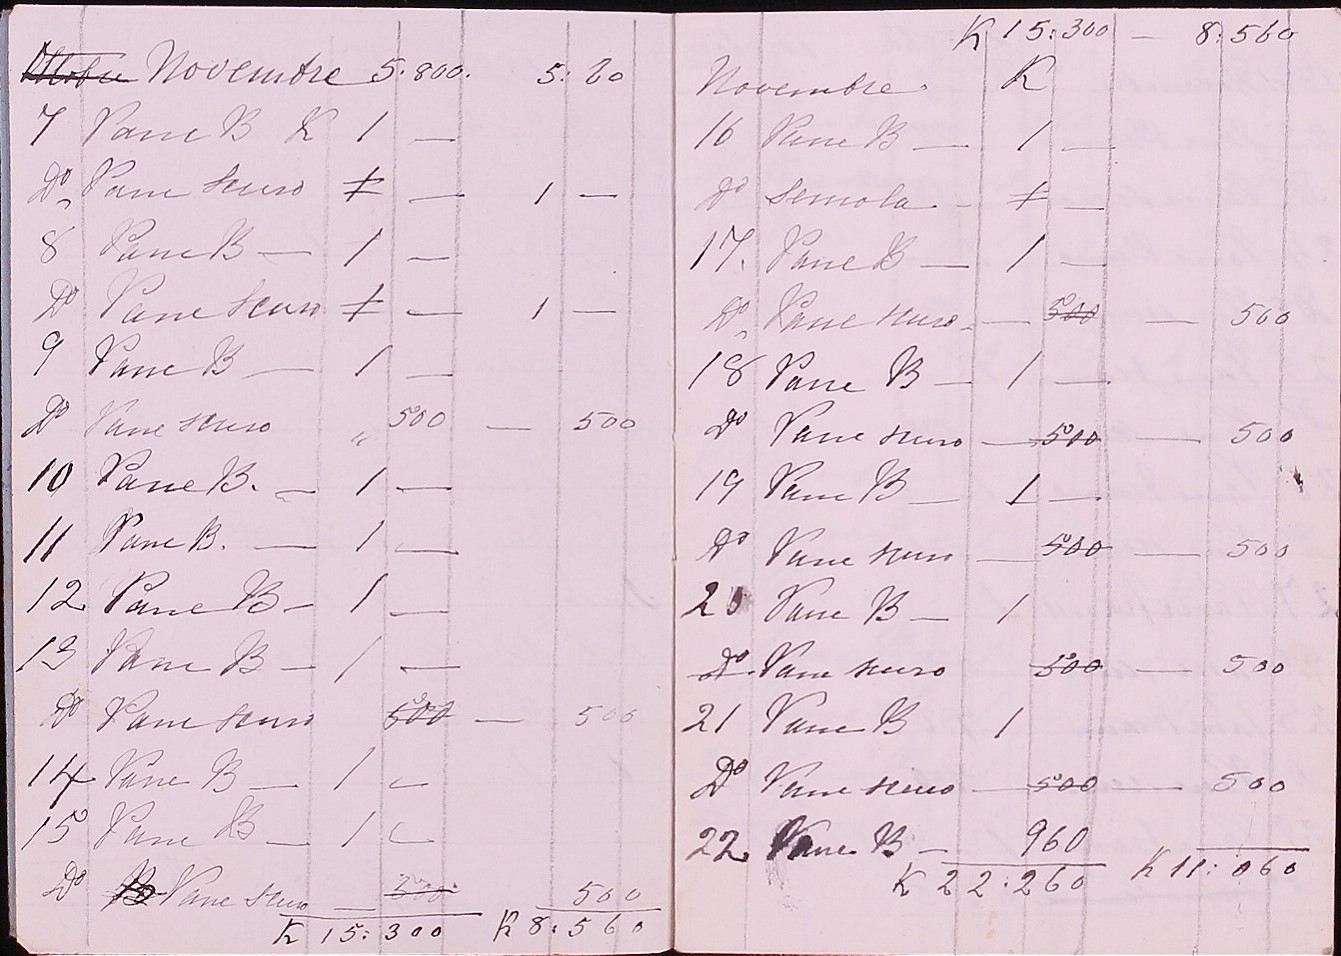 Novembre 5.800. 5.60
7 Pane B K 1 —
Do Pane scuro 1 — 1 —
8 Pane B — 1 —
Do Pane scuro 1 — 1 —
9 Pane B — 1 —
Do Pane scuro „ 500 — 500
10 Pane B. — 1 —
11 Pane B. — 1 —
12 Pane B — 1 —
13 Pane B — 1 —
Do Pane scuro 500 — 500
14 Pane B — 1 —
15 Pane B — 1 —
Do Pane scuro — 500
K 15:300 K 8:560
K 15:300 — 8:560
Novembre. K
16 Pane B — 1 —
Do Semola — 1 —
17. Pane B — 1 —
Do Pane scuro — 500 — 500
18 Pane B — 1 —
Do Pane scuro — 500 — 500
19 Pane B — 1 —
Do Pane scuro — 500 — 500
20 Pane B — 1
Do Pane scuro 500 — 500
21 Pane B 1
Do Pane scuro — 500 — 500
22. Pane B — 960
K 22:260 K 11:060